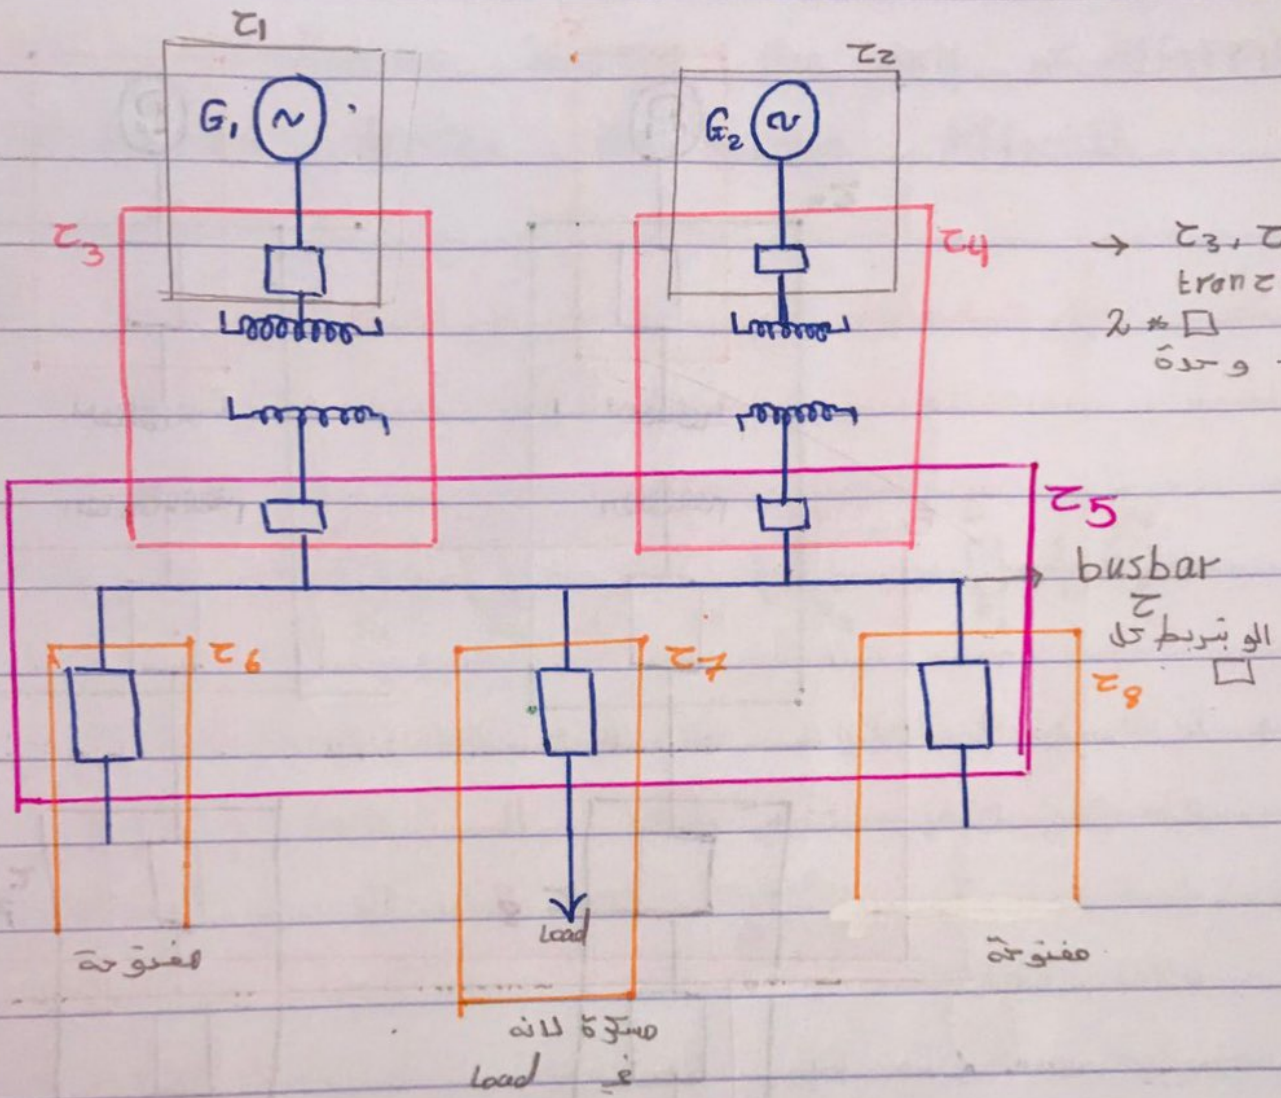 τ1
τ2
G1
G2
τ3
τ4
→ τ3, τ
tranz
2 * □
وحدة
τ5
busbar
الو بتربط كل
□
τ6
τ7
τ8
Load
مفتوحة
مفتوحة
مسكرة لانه
في Load